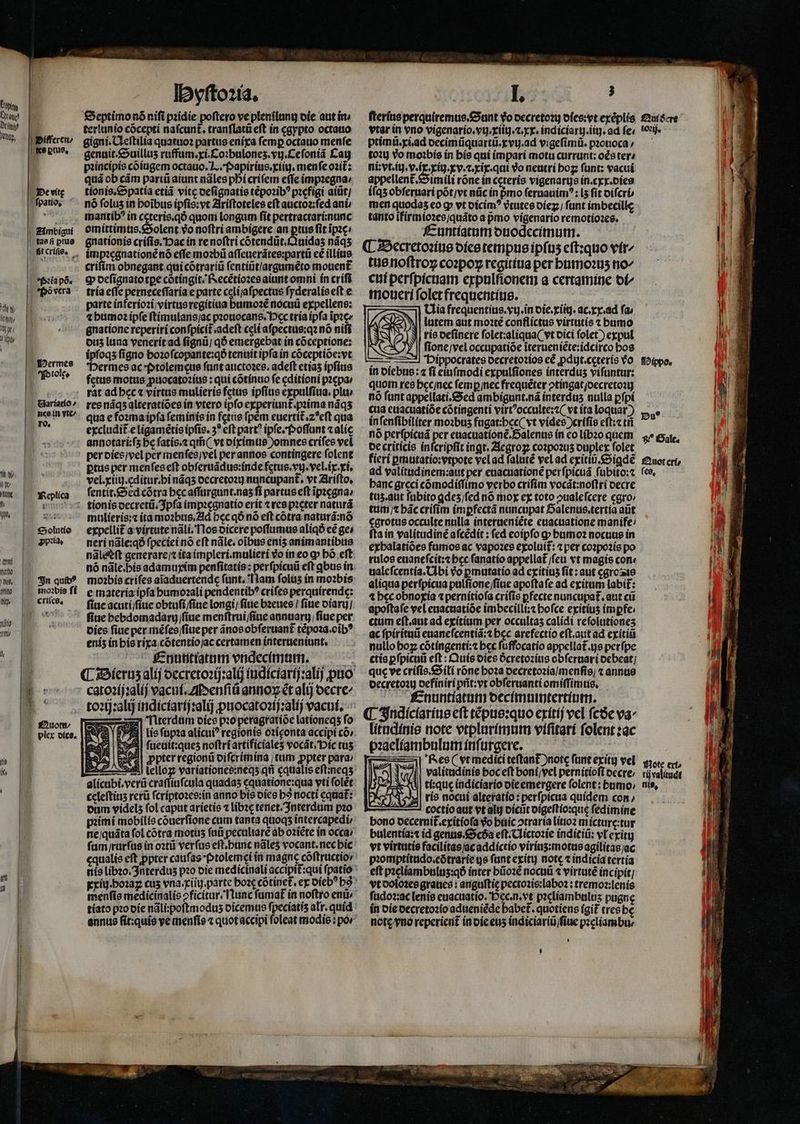 Hystoria.
Septimo nõ nisi pridie postero ve plenilunij die aut in⸗
terlunio cõcepti nascunt̃. translatũ est in egypto octauo
gigni. Uestilia quatuor partus enixa semp octauo mense
genuit. Suillũ ruffum. xi. Corbulonem. vij. Cesoniã Caij
principis cõiugem octauo. L. Papirius. xiij. mense oritʼ:
quã ob cãm partũ aiunt nãles phi crisem esse imp̃gna⸗
tionis. Spatia etiã vite designatis tẽporibʼ prefigi aiũt
nõ solũ in hoĩbus ipsis: vt Aristoteles est auctor: sed ani⸗
mantibʼ in ceteris. qď quom longum sit pertractari: nunc
omittimus. Solent ꝟo nostri ambigere an ꝓtus sit ip̃re⸗
gnationis crisis. Hac in re nostri cõtendũt. Quidaʒ nãqʒ
imp̃gnationẽ nõ esse morbũ asseuerãtes: partũ eẽ illius
crisim obnegant. qui cõtrariũ sentiũt argumẽto mouent̃
ꝙ designato tp̃e cõtingit. Recẽtiores aiunt omni in crisi
tria esse pernecessaria e parte celi aspectus syderalis est e
parte inferiori virtus regitiua humorẽ nocuũ expellens:
⁊ humor ipse stimulans ac prouocans. Hec tria ipsa ip̃re
gnatione reperiri conspicit̃. adest celi aspectus: qꝛ nõ nisi
dũ luna venerit ad signũ qď emergebat in cõceptione:
ipsoqʒ signo horoscopante: qď tenuit ipsa in cõceptiõe: vt
Hermes ac Ptolemeus sunt auctores. adest etiaʒ ipsius
fetus motus ꝓuocatorius: qui cõtinuo se editioni prepa⸗
rat ad hec ⁊ virtus mulieris fetus ipsius expulsiua. plu⸗
res nãqʒ alteratiões in vtero ipso experiunt̃. prima nãqʒ
qua e forma ipsa seminis in fetus spẽm euertit̃. 2ʼ est qua
excludit̃ e ligamẽtis ipsis. 3ʼ est partʼ ipse. Possunt ⁊ alie
annotari: sʒ he satis. ⁊ qm̃ (vt diximus) omnes crises vel
per dies vel per menses vel per annos contingere solent
ꝓtus per menses est obseruãdus: inde fetus. vij. vel. ix. xi.
vel. xiij. editur. hi nãqʒ decretorij nuncupant̃. vt Aristo.
sentit. Sed cõtra hec assurgunt. nãʒ si partus est ip̃regna⸗
tionis decretũ. Ipsa imp̃egnatio erit ⁊ res preter naturã
mulieris: ⁊ ita morbus. Ad hec qď nõ est cõtra naturã: nõ
expellit̃ a virtute nãli. Nos dicere possumus aliqď eẽ ge⸗
neri nãle: qď speciei nõ est nãle. oĩbus enim animantibus
nãle est generare ⁊ ita impleri. mulieri ꝟo in eo ꝙ hõ est
nõ nãle. his adamuxim pensitatis: perspicuũ est qbus in
morbis crises aiaduertende sunt. Nam solum in morbis
e materia ipsa humorali pendentibʼ crises perquirende:
siue acuti siue obtusi siue longi siue breues siue diarij
siue hebdomadarij siue menstrui siue annuarij siue per
dies siue per mẽses siue per ãnos obseruant̃ tẽpora. oĩbʼ
enim in his rixa cõtentio ac certamen interueniunt.
Enuntiatum vndecimum.
¶ Dierum alij decretorij: alij iudiciarij: alij puo
catorij: alij vacui. Mensiũ annorum et alij decre⸗
torij: alij indiciarij: alij prouocatorij: alij vacui.
Nterdum dies pro peragratiõe lationeqʒ so
lis supra alicuiʼ regionis orizonta accipi cõ⸗
sueuit: quem nostri artificialem vocãt. Dic tum
ꝓpter regionũ discrimina tum ꝓpter para⸗
lellorum variationes: neqʒ qñ equalis est: neqʒ
alicubi. verũ crassiuscula quadam equatione: qua vti solẽt
celestium rerũ scriptores: in anno his dies hʼ nocti equat̃:
dum videlʒ sol caput arietis ⁊ libre tenet. Interdum pro
primi mobilis cõuersione cum tanta quoqʒ intercapedi⸗
ne quãta sol cõtra motum suũ peculiarẽ ab oriẽte in occa⸗
sum rursus in ortũ versus est. hunc nãles vocant. nec hic
equalis est ꝓpter causas Ptolemei in magne cõstructio⸗
nis libro. Interdum pro die medicinali accipit̃: qui spatio
xxiij. horarum cum vna. xiiij. parte hore cõtinet̃. ex diebʼ hʼ
mensis medicinalis ɔficitur. Nunc sumat̃ in nostro enũ⸗
tiato pro die nãli: postmodum dicemus speciatim alr̃. quid
annus sit: quis ve mensis ⁊ quot accipi soleat modis: po⸗
Differen⸗
tes ꝓtus.
De vite
spatio.
Ambigui
tas si ꝓtus
sit crisis.
Pria põ.
Põ vera
Hermes
Ptole.
Variatio⸗
nes in vte⸗
ro.
Replica
Solutio
ꝓpria.
In quibʼ
morbis si
crises.
Quotu⸗
plex dies.
I. 3
sterius perquiremus. Sunt ꝟo decretorij dies: vt exẽplis
vtar in vno vigenario. vij. xiiij. ⁊. xx. indiciarij. iiij. ad se⸗
ptimũ. xi. ad decimũquartũ. xvij. ad vigesimũ. prouoca⸗
torij ꝟo morbis in his qui impari motu currunt: oẽs ter⸗
ni: vt. iij. v. ix. xiij. xv. ⁊. xix. qui ꝟo neutri horum sunt: vacui
appellent̃. Simili rõne in ceteris vigenarijs in. cxx. dies
ijsqʒ obseruari põt vt nũc in p̃mo seruauimʼ: lʒ sit discri⸗
men quodam eo ꝙ vt dicimʼ ꝟtutes dierum sunt imbecille
tanto ĩfirmiores quãto a p̃mo vigenario remotiores.
Enuntiatum duodecimum.
¶ Decretorius dies tempus ipsum est: quo vir⸗
tus nostrorum corporum regitiua per humorum no⸗
cui perspicuam expulsionem a certamine di⸗
moueri solet frequentius.
Uia frequentius. vij. in die. xiiij. ac. xx. ad sa⸗
lutem aut mortẽ conflictus virtutis ⁊ humo
ris desinere solet: aliqua (vt dici solet) expul
sione vel occupatiõe iterueniẽte: idcirco hos
Hippocrates decretorios eẽ ꝓdijt. ceteris ꝟo
in diebus: ⁊ si eiusmodi expulsiones interdum visuntur:
quom res hec nec semp nec frequẽter ɔtingat decretorij
nõ sunt appellati. Sed ambigunt. nã interdum nulla p̃spi
cua euacuatiõe cõtingenti virtʼ occulte: ⁊ (vt ita loquar)
insensibiliter morbum fugat: hec (vt vides) crisis est: ⁊ tñ
nõ perspicuã per euacuationẽ. Galenus in eo libro quem
de criticis inscripsit ingt. Aegrorum corporum duplex solet
fieri ꝓmutatio: vtpote vel ad salutẽ vel ad exitiũ. Sigdẽ
ad valitudinem: aut per euacuationẽ perspicuã subito: ⁊
hanc greci cõmodissimo verbo crisim vocãt: nostri decre
tum. aut subito qdem sed nõ mox ex toto ɔualescere egro⸗
tum ⁊ hãc crisim imꝑfectã nuncupat Galenus. tertia aũt
egrotus occulte nulla interueniẽte euacuatione manife⸗
sta in valitudinẽ ascẽdit: sed eo ipso ꝙ humor nocuus in
exhalatiões fumos ac vapores exoluit̃: ⁊ per corporis po
rulos euanescit: ⁊ hec sanatio appellat̃ seu vt magis con⸗
ualescentia. Ubi ꝟo ꝓmutatio ad exitium fit: aut egrotans
aliqua perspicua pulsione siue apostasi ad exitum labit̃:
⁊ hec obnoxia ⁊ pernitiosa crisis ꝑfecte nuncupat̃. aut cũ
apostase vel euacuatiõe imbecilli: ⁊ hosce exitium imꝑfe⸗
ctum est. aut ad exitium per occultas calidi resolutiones
ac spirituũ euanescentiã: ⁊ hec arefectio est. aut ad exitiũ
nullo horum cõtingenti: ⁊ hec suffocatio appellat̃. ijs perspe
ctis ꝑspicuũ est: Quis dies decretorius obseruari debeat
que ve crisis. Sili rõne hora decretoria mensis ⁊ annus
decretorij definiri pñt: vt obseruanti omissimus.
Enuntiatum decimumtertium.
¶ Indiciarius est tẽpus: quo exitij vel scðe va⸗
litudinis note vtplurimum visitari solent: ac
praeliambulum insurgere.
Res (vt medici testant̃) note sunt exitij vel
valitudinis hoc est boni vel perniciosi decre⸗
tisque indiciario die emergere solent: humo⸗
ris nocui alteratio: perspicua quidem con⸗
coctio aut vt alij dicũt digestio: que sedimine
bono decernit̃. exitiosa ꝟo huic ɔtraria liuor micture: tur
bulentia: ⁊ id genus. Scða est. Uictorie indiciũ: vl̃ exitij
vt virtutis facilitas ac addictio virium: motus agilitas ac
promptitudo. cõtrarie ijs sunt exitij note ⁊ indicia tertia
est preliambulum: qď inter humorẽ nocuũ ⁊ virtutẽ incipit
vt dolores graues: angustie pectoris: labor: tremor: lenis
sudor: ac lenis euacuatio. Hec. n. vt preliambulum pugne
in die decretorio adueniẽde habet̃. quotiens igit̃ tres he
note vno reperient̃ in die eum indiciariũ siue preliambu⸗
Qui decre
torij.
Hippo.
Duʼ
Gale.
Quot cri⸗
ses.
Note exi⸗
tij valitudi
nis.